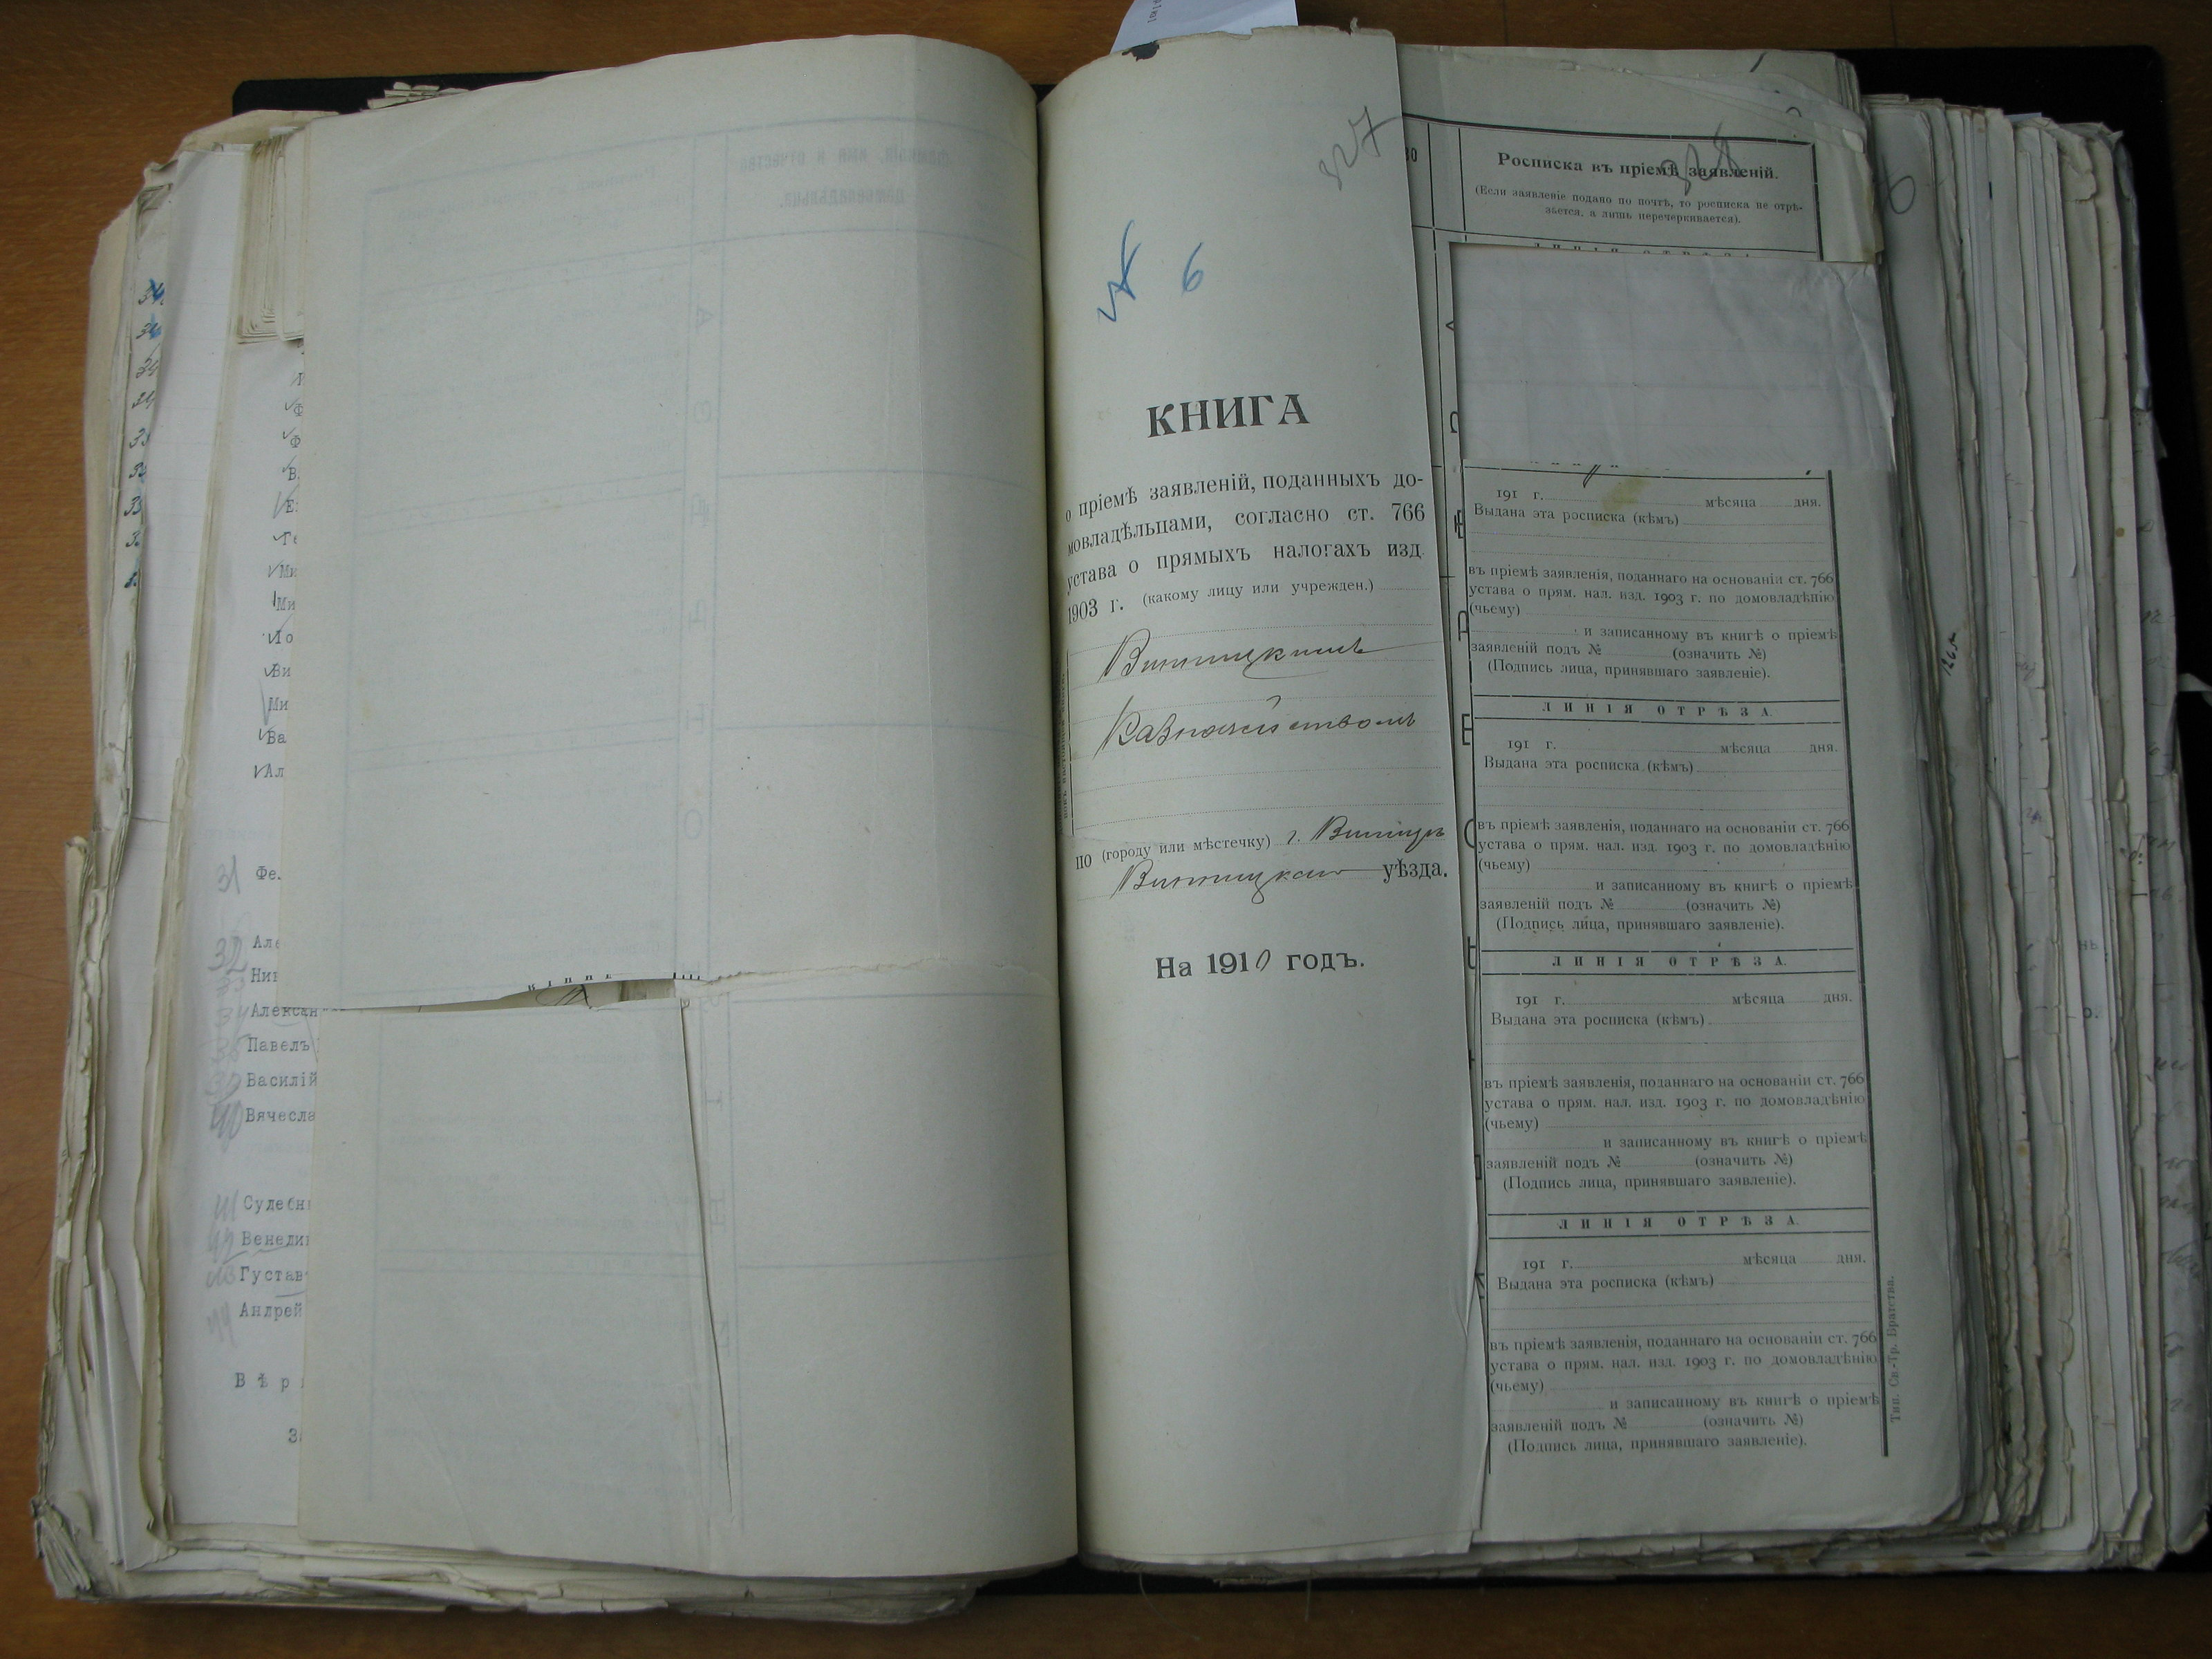 31 Фе.
32 Але
Ник
34 Алексан
Павелъ
Василій
40 Вячесла
41 Судебн
42 Венеди
43 Густав
44 Андрей
Вѣр
327
№ 6
КНИГА
о пріемѣ заявленій, поданныхъ до-
мовладѣльцами, согласно ст. 766
устава о прямыхъ налогахъ изд.
1903 г. (какому лицу или учрежден.)
Винницкимъ
Казначействомъ
по (городу или мѣстечку) г. Винницѣ
Винницкаго уѣзда.
На 1910 годъ.
328
Росписка въ пріемѣ заявленій.
(Если заявленіе подано по почтѣ, то росписка не отрѣ-
зывается, а лишь перечеркивается).
ЛИНІЯ ОТРѢЗА
191 г. мѣсяца дня.
Выдана эта росписка (кѣмъ)
въ пріемѣ заявленія, поданнаго на основаніи ст. 766
устава о прям. нал. изд. 1903 г. по домовладѣнію
(чьему)
и записанному въ книгѣ о пріемѣ
заявленій подъ № (означить №)
(Подпись лица, принявшаго заявленіе).
ЛИНІЯ ОТРѢЗА.
191 г. мѣсяца дня.
Выдана эта росписка (кѣмъ)
въ пріемѣ заявленія, поданнаго на основаніи ст. 766
устава о прям. нал. изд. 1903 г. по домовладѣнію
(чьему)
и записанному въ книгѣ о пріемѣ
заявленій подъ № (означить №)
(Подпись лица, принявшаго заявленіе).
ЛИНІЯ ОТРѢЗА.
191 г. мѣсяца дня.
Выдана эта росписка (кѣмъ)
въ пріемѣ заявленія, поданнаго на основаніи ст. 766
устава о прям. нал. изд. 1903 г. по домовладѣнію
(чьему)
и записанному въ книгѣ о пріемѣ
заявленій подъ № (означить №)
(Подпись лица, принявшаго заявленіе).
ЛИНІЯ ОТРѢЗА.
191 г. мѣсяца дня.
Выдана эта росписка (кѣмъ)
въ пріемѣ заявленія, поданнаго на основаніи ст. 766
устава о прям. нал. изд. 1903 г. по домовладѣнію
(чьему)
и записанному въ книгѣ о пріемѣ
заявленій подъ № (означить №)
(Подпись лица, принявшаго заявленіе).
Тип. Св.-Тр. Братства.